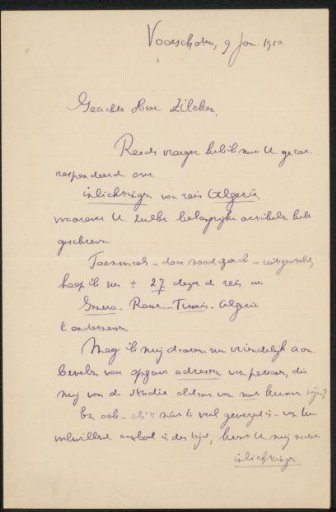 Voorschoten, 9 Jan. 1910.
Geachte Heer Zilcken,
Reeds vroeger heb ik met U gecor-
respondeerd over
inlichtingen van reis Algerië,
waarover U zulke belangrijke artikelen hebt
geschreven.
Toenmaals - door noodzaak - uitgesteld,
hoop ik nu ± 27 dezer de reis naar
Genua - Rome - Tunis - Algerië
te ondernemen.
Mag ik mij daarom nu vriendelijk aan-
bevelen voor opgave adressen van personen, die
mij van de studie aldaar van nut kunnen zijn?
En ook - als niet te veel gevergd is - van Uw
welwillend aanbod in der tijd, kunt U mij
inlichtingen